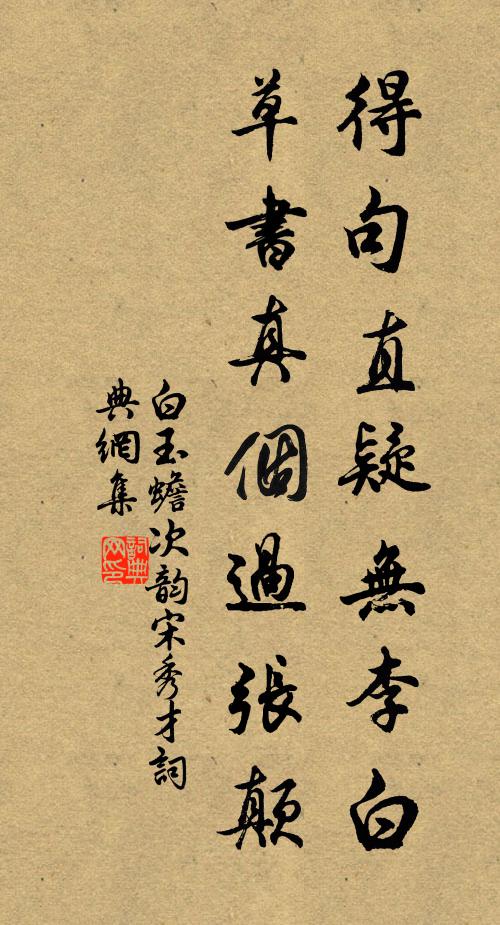 得句直疑無李白
草書真個過張顛
白玉蟾次韵宋秀才詞
典網集
詞典
网印